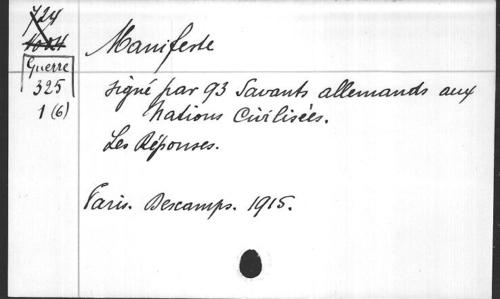 724
Guerre
325
1 (6)
Manifeste
signé par 93 Savants allemands aux
Nations Civilisées.
Les Réponses.
Paris. Descamps. 1915.